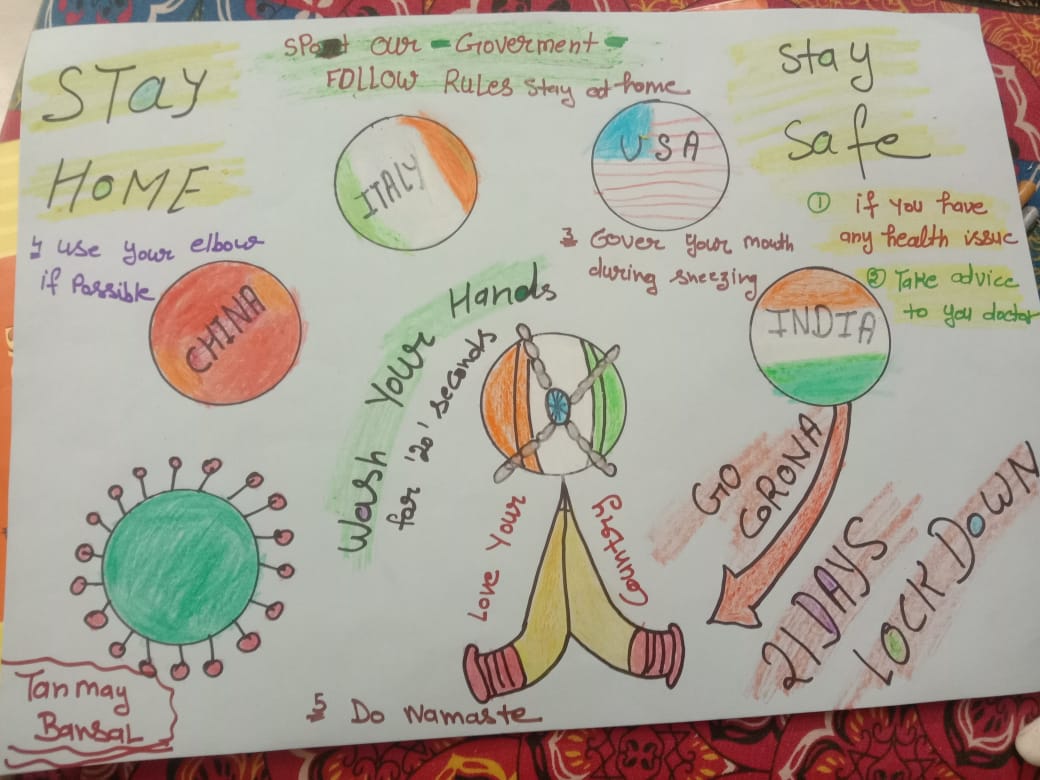 STay
HOME
SPot our - Goverment -
FOLLOW RULES Stay at home
Stay
Safe
ITALY
USA
① if you have
any health issue
② Take advice
to you doctor
3 Cover your mouth
during sneezing
4 use your elbow
if Possible
CHINA
INDIA
Wash Your Hands
for '20' seconds
GO
CORONA
21 DAYS
LOCK DOWN
Love Your Country
5 Do Namaste
Tanmay
Bansal